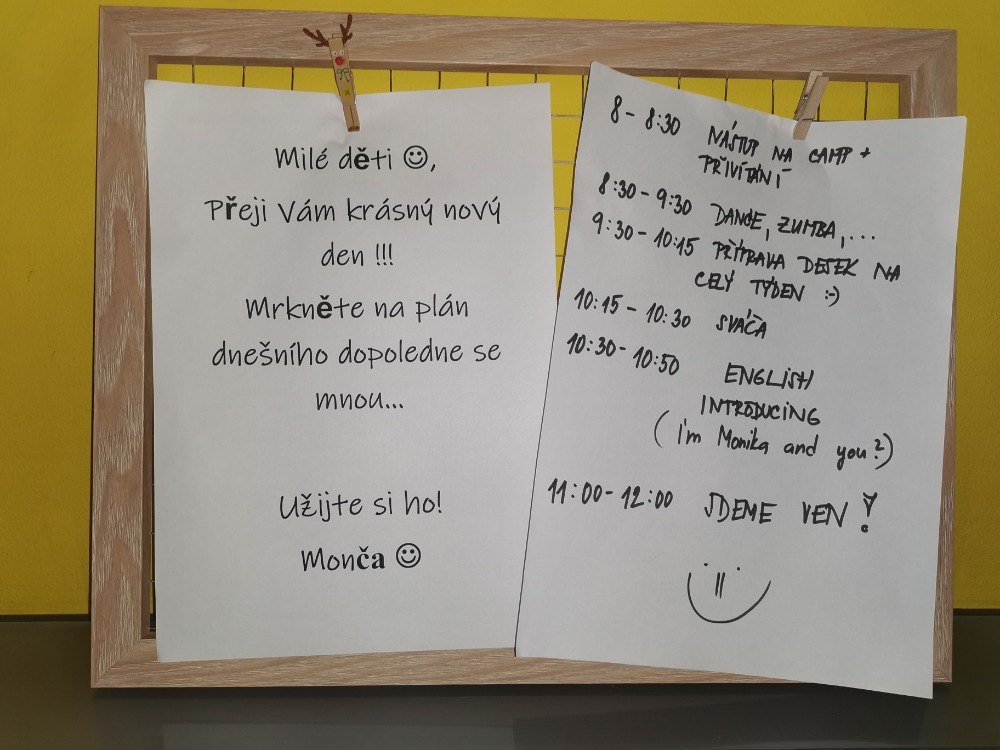 Milé děti ☺,
Přeji Vám krásný nový
den !!!
Mrkněte na plán
dnešního dopoledne se
mnou...
Užijte si ho!
Monča ☺
8 - 8:30 NÁSTUP NA CAMP +
PŘIVÍTÁNÍ
8:30 - 9:30 DANCE, ZUMBA, ...
9:30 - 10:15 PŘÍPRAVA DESEK NA
CELÝ TÝDEN :-)
10:15 - 10:30 SVÁČA
10:30 - 10:50 ENGLISH
INTRODUCING
(I'm Monika and you?)
11:00 - 12:00 JDEME VEN!